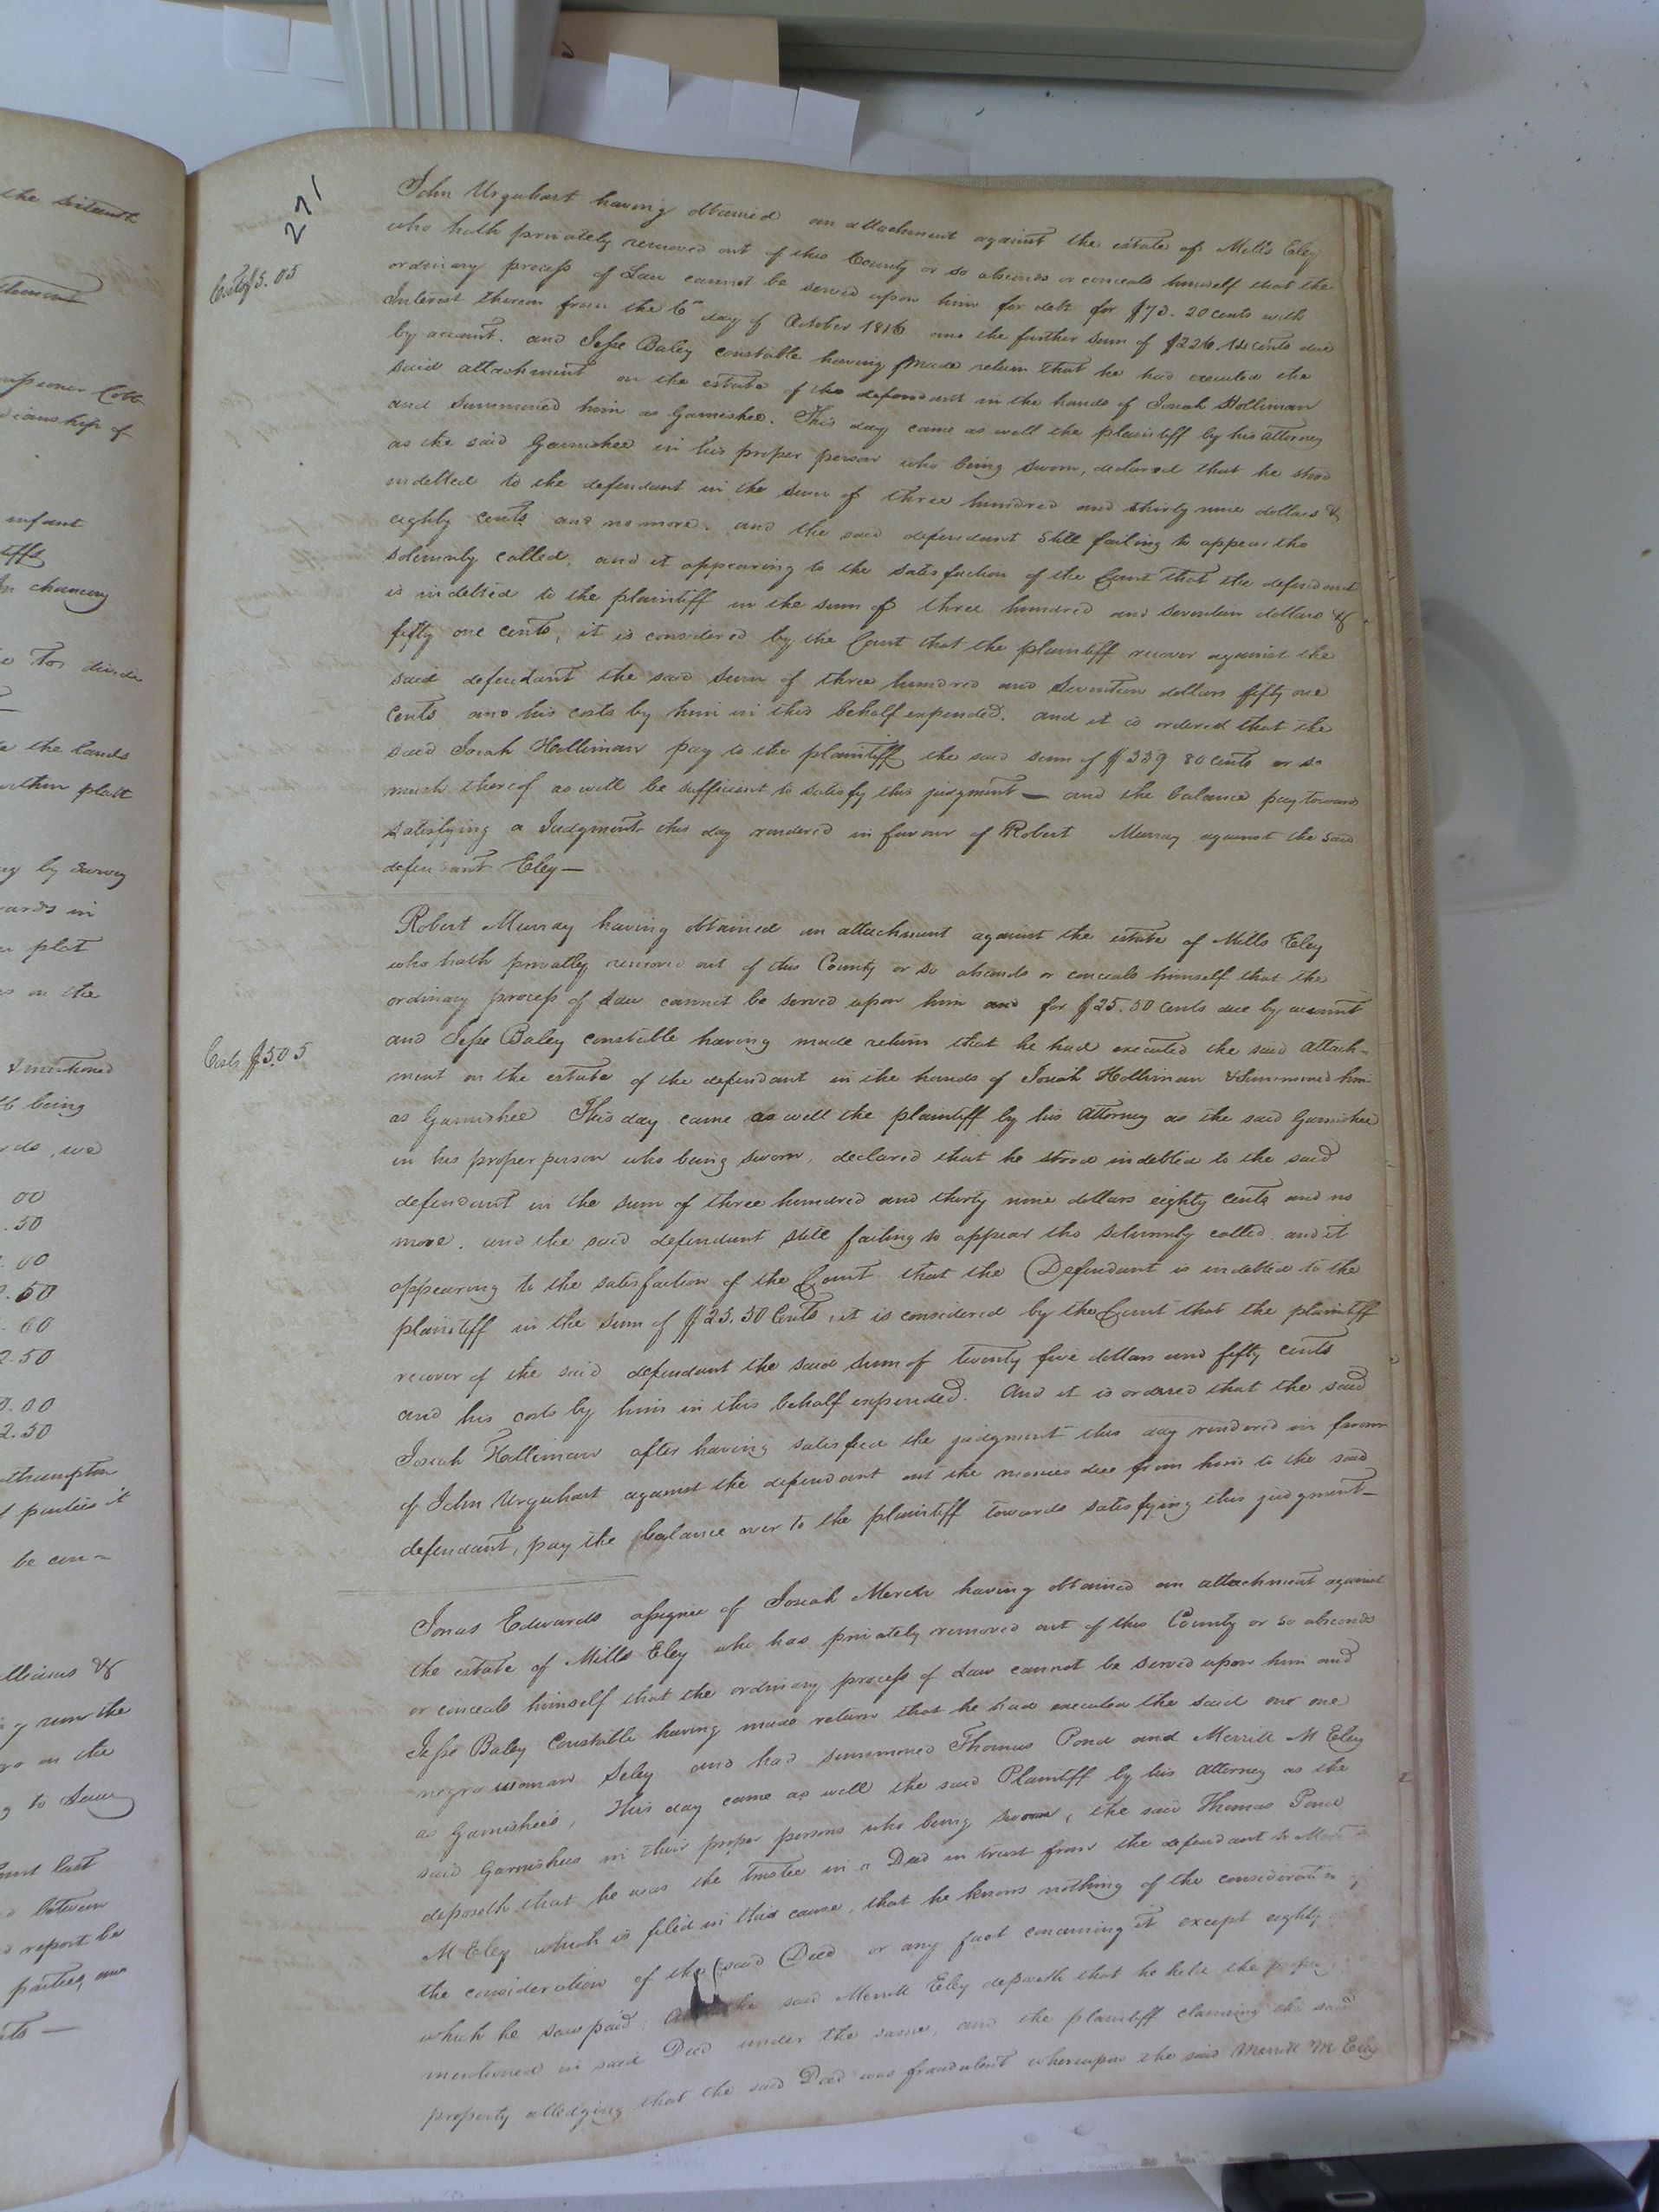 the sixteenth
Cobb
infant
In chancery
the lands
by survey
plat
on the
mentioned
being
00
.50
.00
.50
.60
2.50
0.00
2.50
parties it
be con-
run the
on the
last
between
report be
parties, and
271
John Urquhart having obtained an attachment against the estate of Mills Eley
who hath privately removed out of this County or so absconds or conceals himself that the
Costs $5.05
ordinary process of Law cannot be served upon him for debt for 20 cents with
Interest thereon from the 6 day of October 1816 and the further sum of $226.14 cents due
by account. and Jesse Baley constable having made return that he had executed the
said attachment on the estate of the defendant in the hands of Josiah Holliman
and summoned him as Garnishee. This day came as well the plaintiff by his attorney
as the said Garnishee in his proper person who being sworn, declared that he stood
indebted to the defendant in the sum of three hundred and thirty nine dollars &
eighty cents and no more. and the said defendant still failing to appear tho
solemnly called, and it appearing to the satisfaction of the Court that the defendant
is indebted to the plaintiff in the sum of three hundred and seventeen dollars &
fifty one cents, it is considered by the Court that the plaintiff recover against the
said defendant the said sum of three hundred and seventeen dollars fifty one
Cents and his costs by him in this behalf expended. and it is ordered that the
said Josiah Holliman pay to the plaintiff the said sum of $339 80 Cents or so
much thereof as will be sufficient to satisfy this judgment — and the balance pay towards
satisfying a Judgment this day rendered in favour of Robert Murray against the said
defendant Eley —
Robert Murray having obtained an attachment against the estate of Mills Eley
who hath privatley removed out of this County or so absconds or conceals himself that the
ordinary process of Law cannot be served upon him and for $25.50 Cents due by account
Costs $5.05
and Jesse Baley constable having made return that he had executed the said attach=
ment on the estate of the defendant in the hands of Josiah Holliman & summoned him
as Garnishee This day came as well the plaintiff by his attorney as the said Garnishee
in his proper person who being sworn, declared that he stood indebted to the said
defendant in the sum of three hundred and thirty nine dollars eighty cents and no
more. and the said defendant still failing to appear tho solemnly called. and it
appearing to the satisfaction of the Court that the Defendant is indebted to the
plaintiff in the sum of $25.50 Cents, it is considered by the Court that the plaintiff
recover of the said defendant the said sum of twenty five dollars and fifty cents
and his costs by him in this behalf expended. And it is ordered that the said
Josiah Holliman after having satisfied the judgment this day rendered in favour
of John Urquhart against the defendant out the monies due from him to the said
defendant, pay the balance over to the plaintiff towards satisfying this judgment —
Jonas Edwards assignee of Josiah having obtained an attachment against
the estate of Mills Eley who has privately removed out of this County or so absconds
or conceals himself that the ordinary process of Law cannot be served upon him and
Jesse Baley Constable having made return that he had executed the said one one
negro woman Seley and had summoned Thomas Pond and Merrill M Eley
as Garnishees, This day came as well the said Plaintiff by his attorney as the
said Garnishees in their proper persons who being sworn, the said Thomas Pond
deposeth that he was the trustee in a Deed in trust from the defendant to
M Eley which is filed in this cause, that he knows nothing of the consideration
the consideration of the said Deed or any fact concerning it except eighty
which he saw paid the said Merrill Eley deposeth that he held the
mentioned in said Deed under the same, and the plaintiff claiming the said
property alledging that the said Deed was fraudulent whereupon the said Merrill M Eley